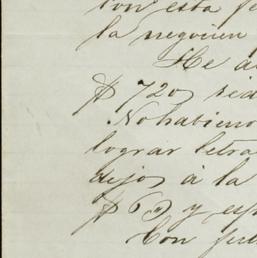 con esta fe
la negocien
He a
$720, sid
No habieno
lograr letra
dejo á la
$6 y esp
Con fe